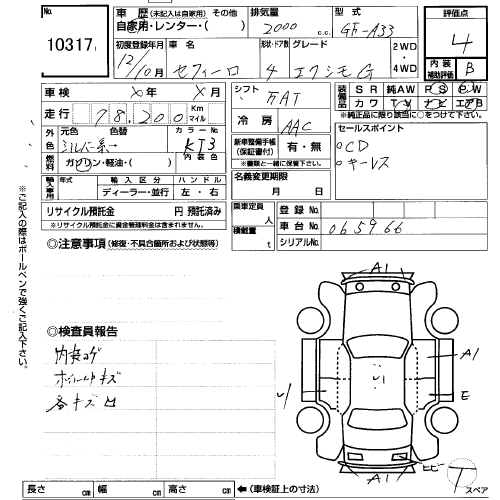 No. 10317
車歴 (未記入は自家用) その他
自家用・レンター・( )
排気量 2000 c.c.
型式 GF-A33
評価点 4
内装補助評価 B
初度登録年月 12/10月
車名 セフィーロ
形状・ドア数 4
グレード エクシモG
2WD・4WD
車検 年 月
走行 78,200 Km マイル
シフト FAT
冷房 AAC
装備品 SR 純AW PS PW
カワ TV ナビ エアB
※純正品に限り該当に○をつけて下さい。
外色 元色 シルバー系 色替
カラーNo. KY3
内装色
燃料 ガソリン・軽油・( )
新車整備手帳(保証書付) 有・無
※書類と一緒に保管して下さい。
セールスポイント
○CD
○キーレス
輸入車用 年式 輸入区分 ハンドル
ディーラー・並行 左・右
名義変更期限 月 日
リサイクル預託金 円 預託済み
※リサイクル預託金に資金管理料金は含まれません。
乗車定員 人
積載量 t
登録No.
車台No. 065966
シリアルNo.
◎注意事項 (修復・不具合箇所および状態等)
◎検査員報告
内装コゲ
ホイールキズ
各キズ凹
※ご記入の際はボールペンで強くご記入下さい。
A1
A1
E
A1
T スペア
長さ cm 幅 cm 高さ cm ←(車検証上の寸法)